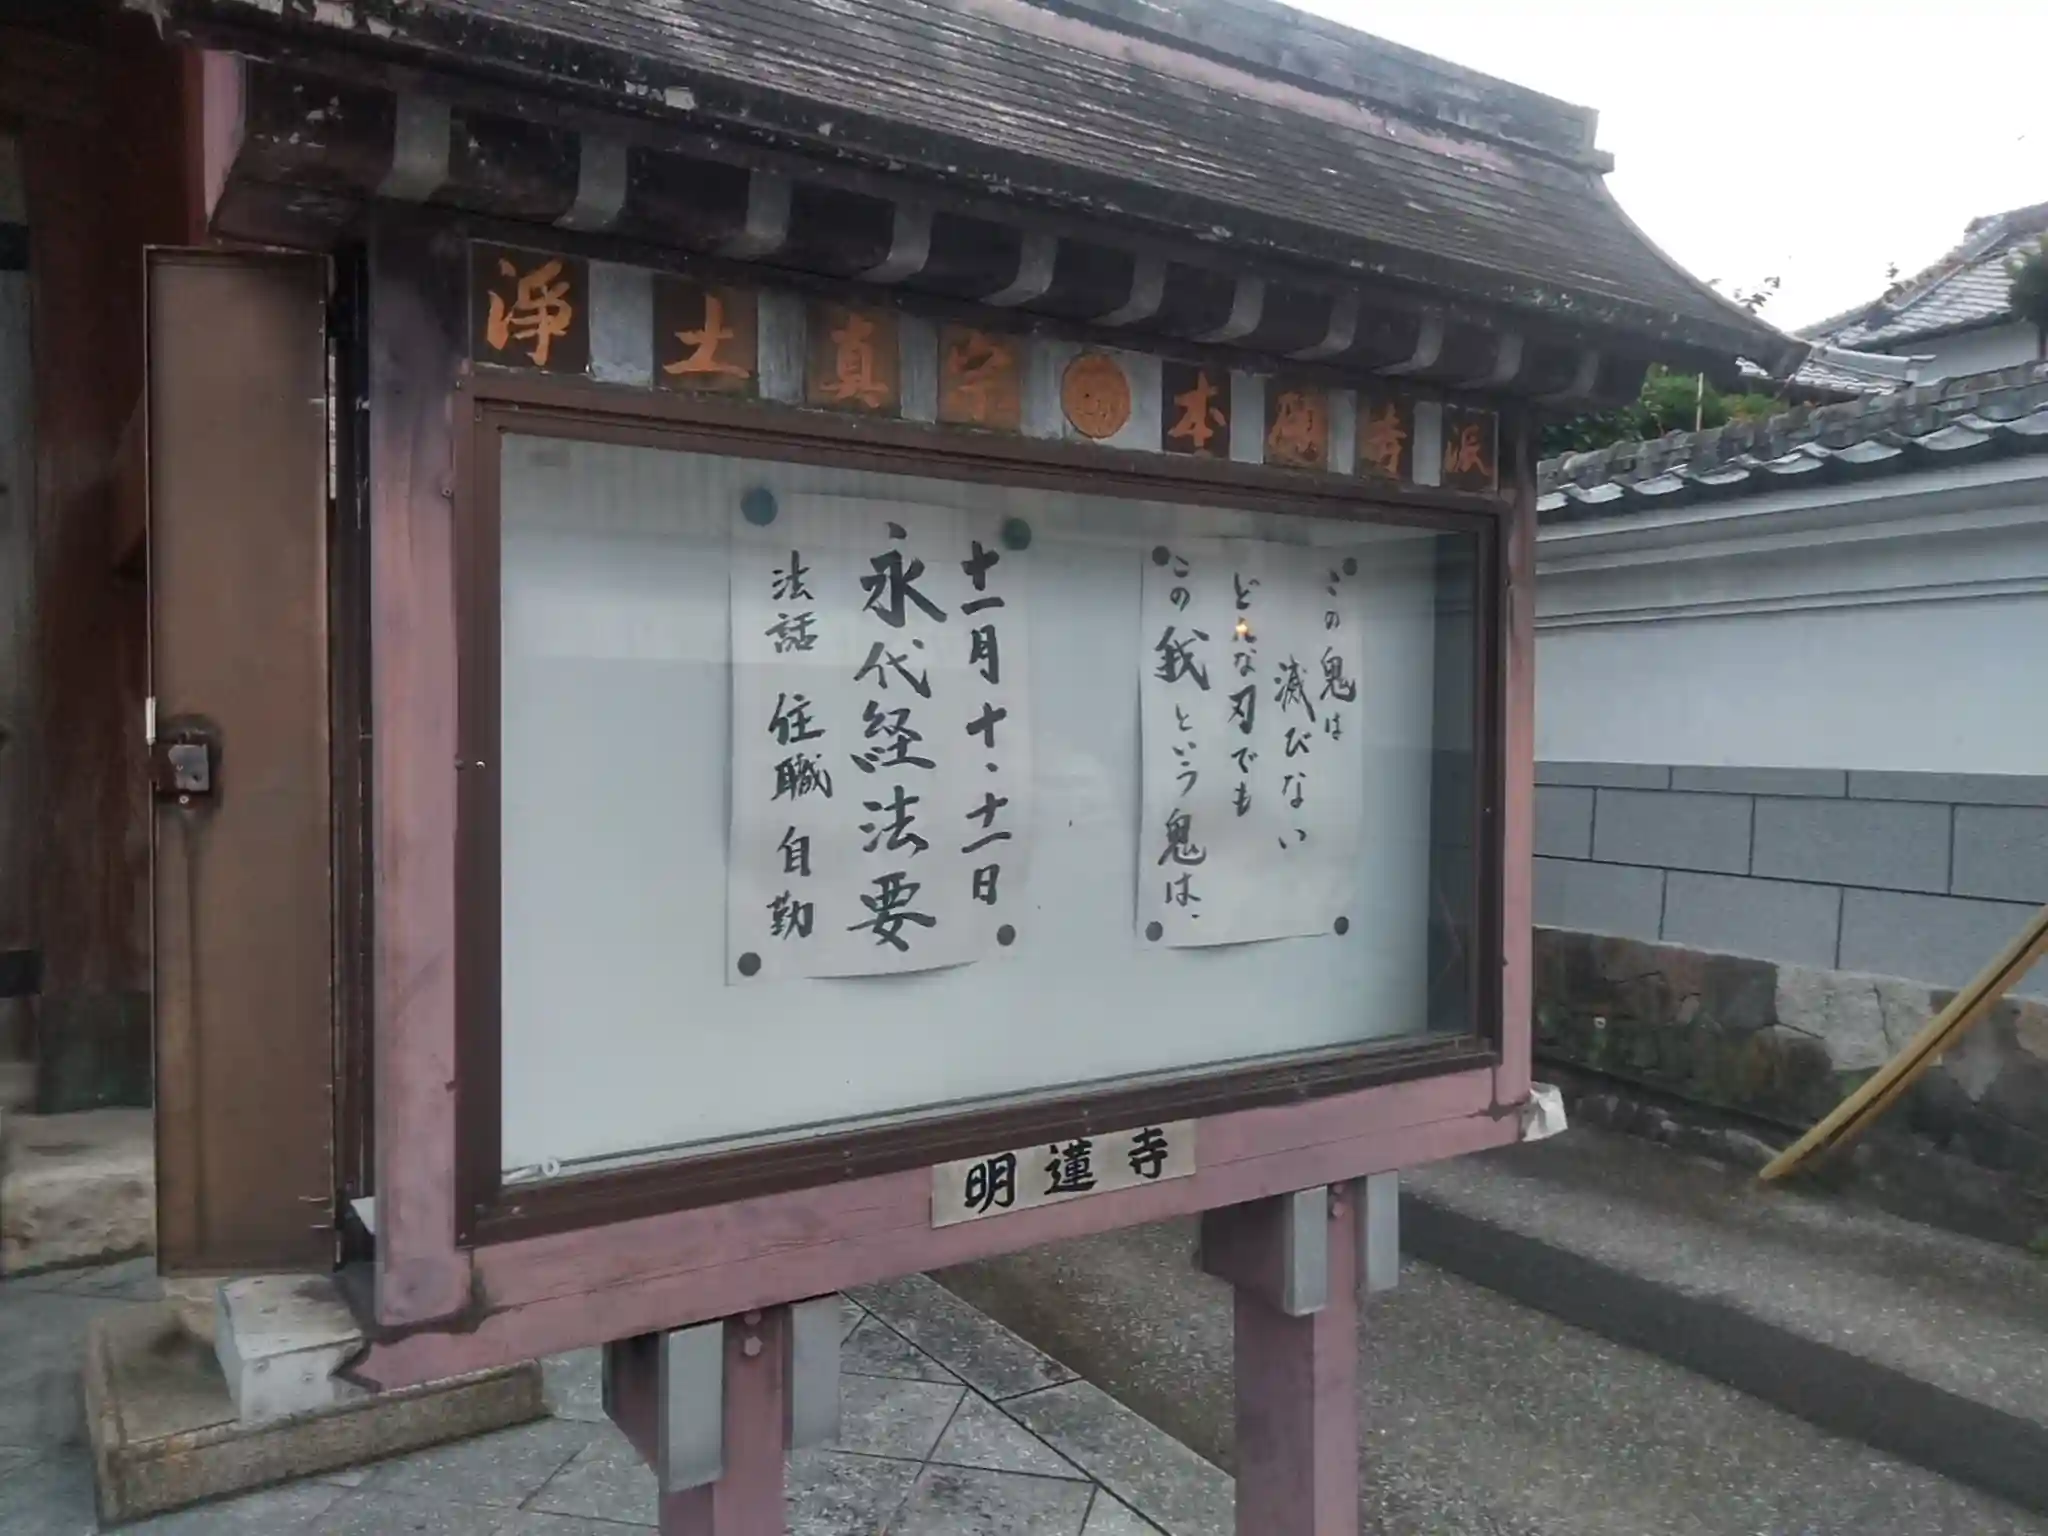 淨土真宗 本願寺派
この鬼は
滅びない
どんな刃でも
この我という鬼は、
十一月十、十一日
永代経法要
法話 住職 自勤
明蓮寺